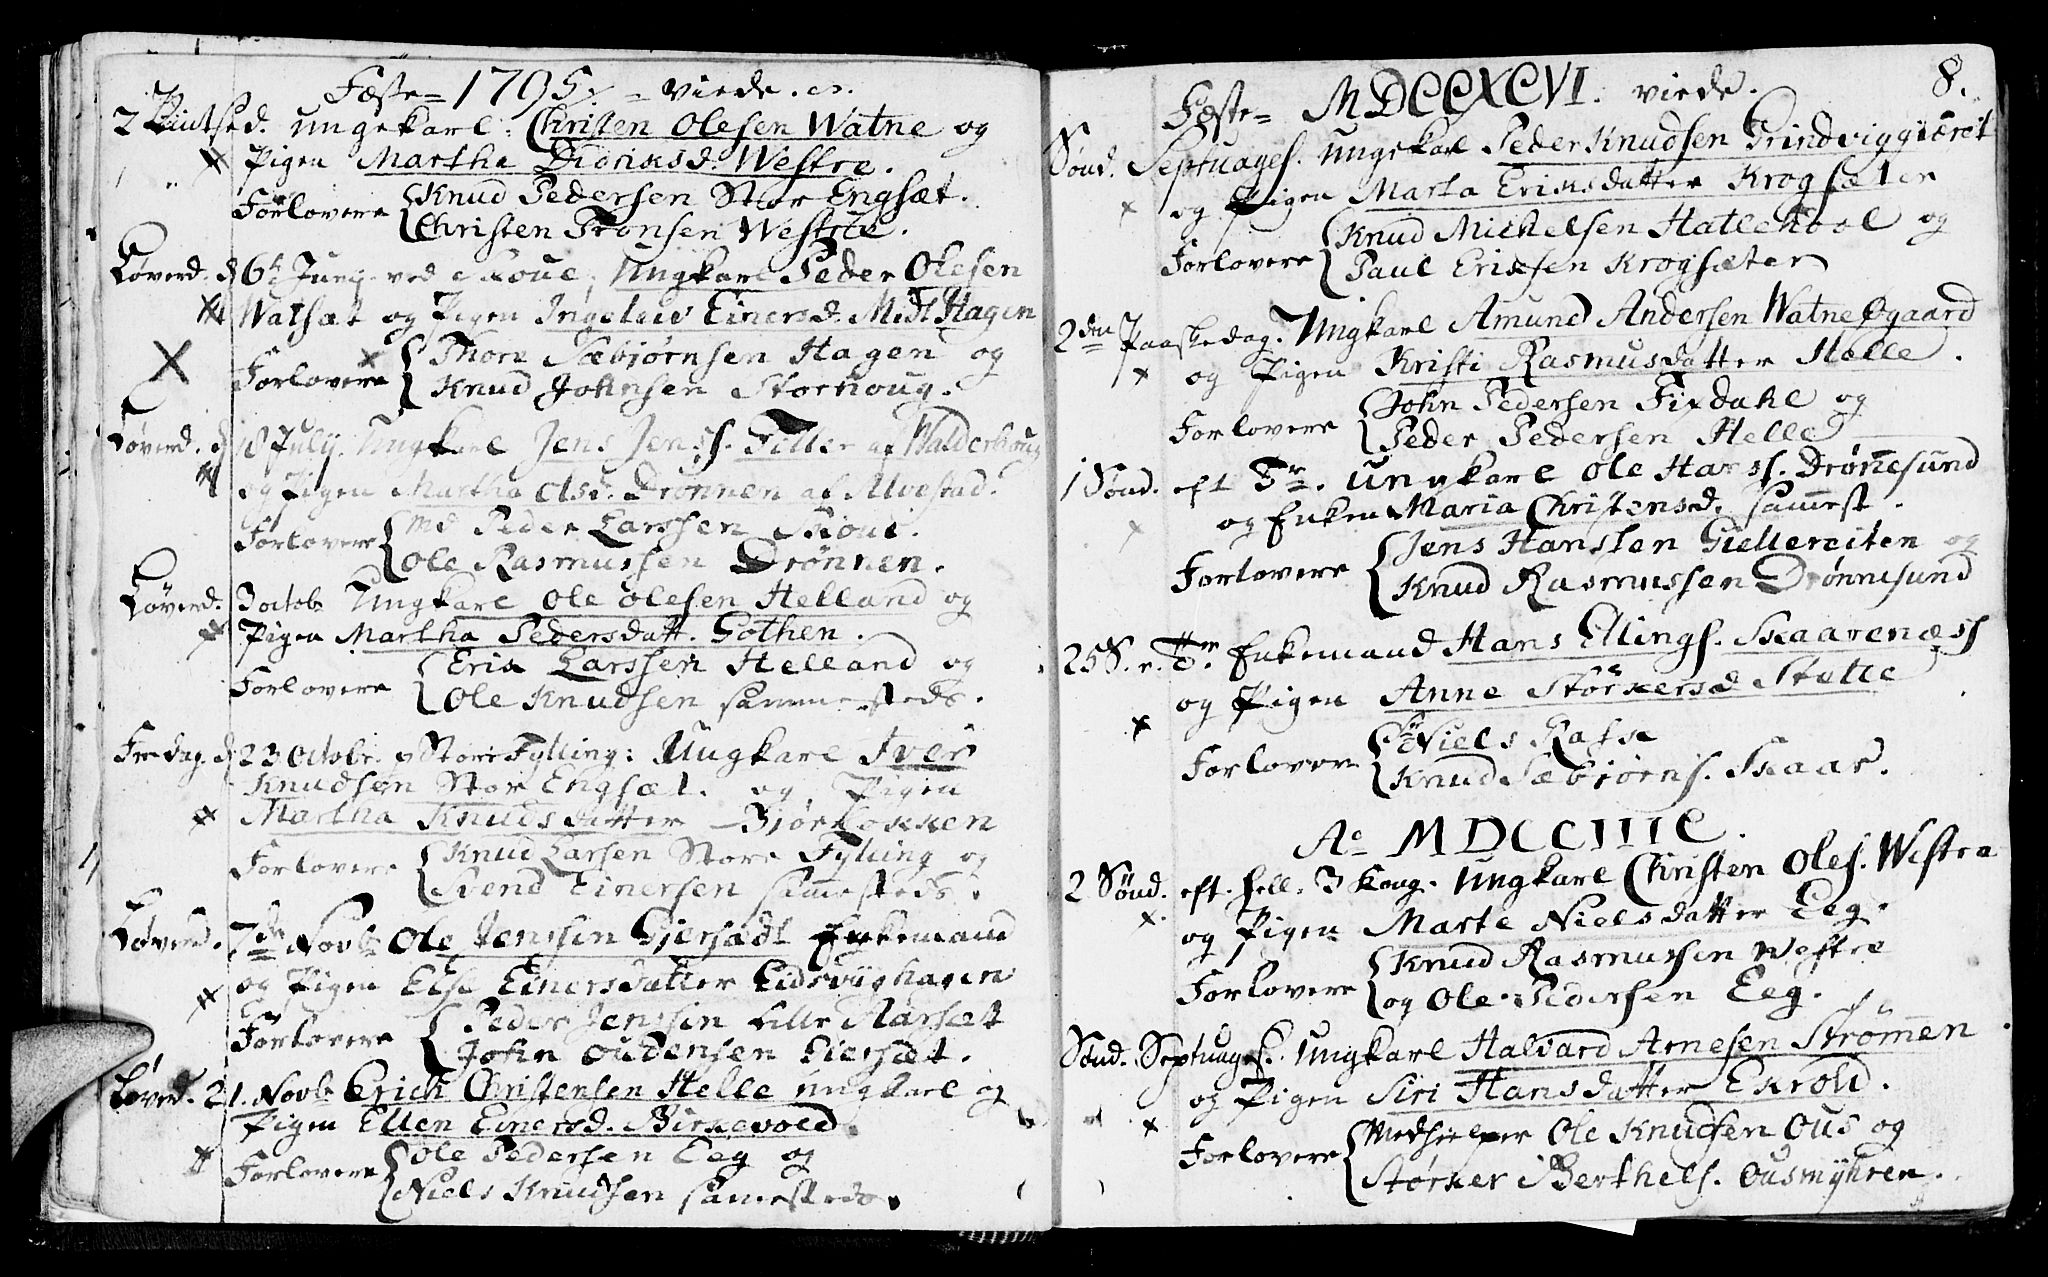 Fæste = 1795 = viede.
2 Pintsed. Ungekarl: Christen Olesen Watne og
Pigen Martha Didriksd. Westre.
Forlovere Knud Pedersen Stor Engsæt.
Christen Tronsen Westre.
Løverd. d 6t Junij ved Skoue, Ungkarl Peder Olesen
Watsæt og Pigen Ingeleiv Einersd. Midt Hagen
Forlovere Thore Sæbjørnsen Hagen og
Knud Johnsen Storhoug.
Løverd. d 18 Julij. Ungkarl Jens Jenss. Tiller af Walderhoug
og Pigen Martha Olsd. Drønnen af Alvestad.
Forlovere Md Peder Larssen Skoue.
Ole Rasmussen Drønnen.
Løverd. 3 octobr Ungkarl Ole Olesen Helland og
Pigen Martha Pedersdatt. Gothen.
Forlovere Erik Larssen Helland og
Ole Knudsen sammesteds.
Fredag. d 23 Octobr. p Store Fylling: Ungkarl Iver
Knudsen Stor Engsæt. og Pigen
Martha Knudsdatter Bjørløkken
Forlovere Knud Larsen Store Fylling og
Svend Einersen samesteds.
Løverd. 7de Novbr Ole Jenssen Gjersædt Enkemand
og Pigen Else Einersdatter Eidsviighagen
Forlovere Peder Jenssen Lille Aarsæt
John Oudensen Giersæt.
Løverd. 21. Novbr Erich Christensen Helle Ungkarl og
Pigen Ellen Einersd. Birkevold.
Forlovere Ole Pedersen Eeg og
Niels Knudsen samesteds.
Fæste = MDCCXCVI. viede. 8.
Sønd. Septuages. Ungekarl Peder Knudsen Grindviggiæret
og Pigen Marta Eriksdatter Krogsæter
Forlovere Knud Michelsen Hatlehool og
Paul Eriksen Krogsæter
2den Paaskedag. Ungkarl Amund Andersen Watne Øgaard
og Pigen Kristi Rasmusdatter Helle.
Forlovere John Pedersen Fixdahl og
Peder Pedersen Helle
1 Sønd. eft Tr. Ungkarl Ole Hanss. Drønnesund
og Enken Maria Christensd. samest.
Forlovere Jens Hanssen Giellereiten og
Knud Rasmussen Drønnesund
25 S. e. Tr. Enkemand Hans Ellings. Skaarenæss
og Pigen Anne Størkersd Stutte
Forlovere Sr Niels Rafse
Knud Sæbjørns. Skaar.
Ao MDCCIIIC.
2 Sønd. eft. hell. 3 Kong. Ungkarl Christen Oles. Westre
og Pigen Marte Nielsdatter Eeg.
Forlovere Knud Rasmussen Westre
og Ole Pedersen Eeg.
Sønd. Septuages. Ungkarl Halvard Arnesen Strømen
og Pigen Siri Hansdatter Ekrold.
Forlovere Medhielper Ole Knudsen Ous og
Størker Berthels. Ousmyhren.